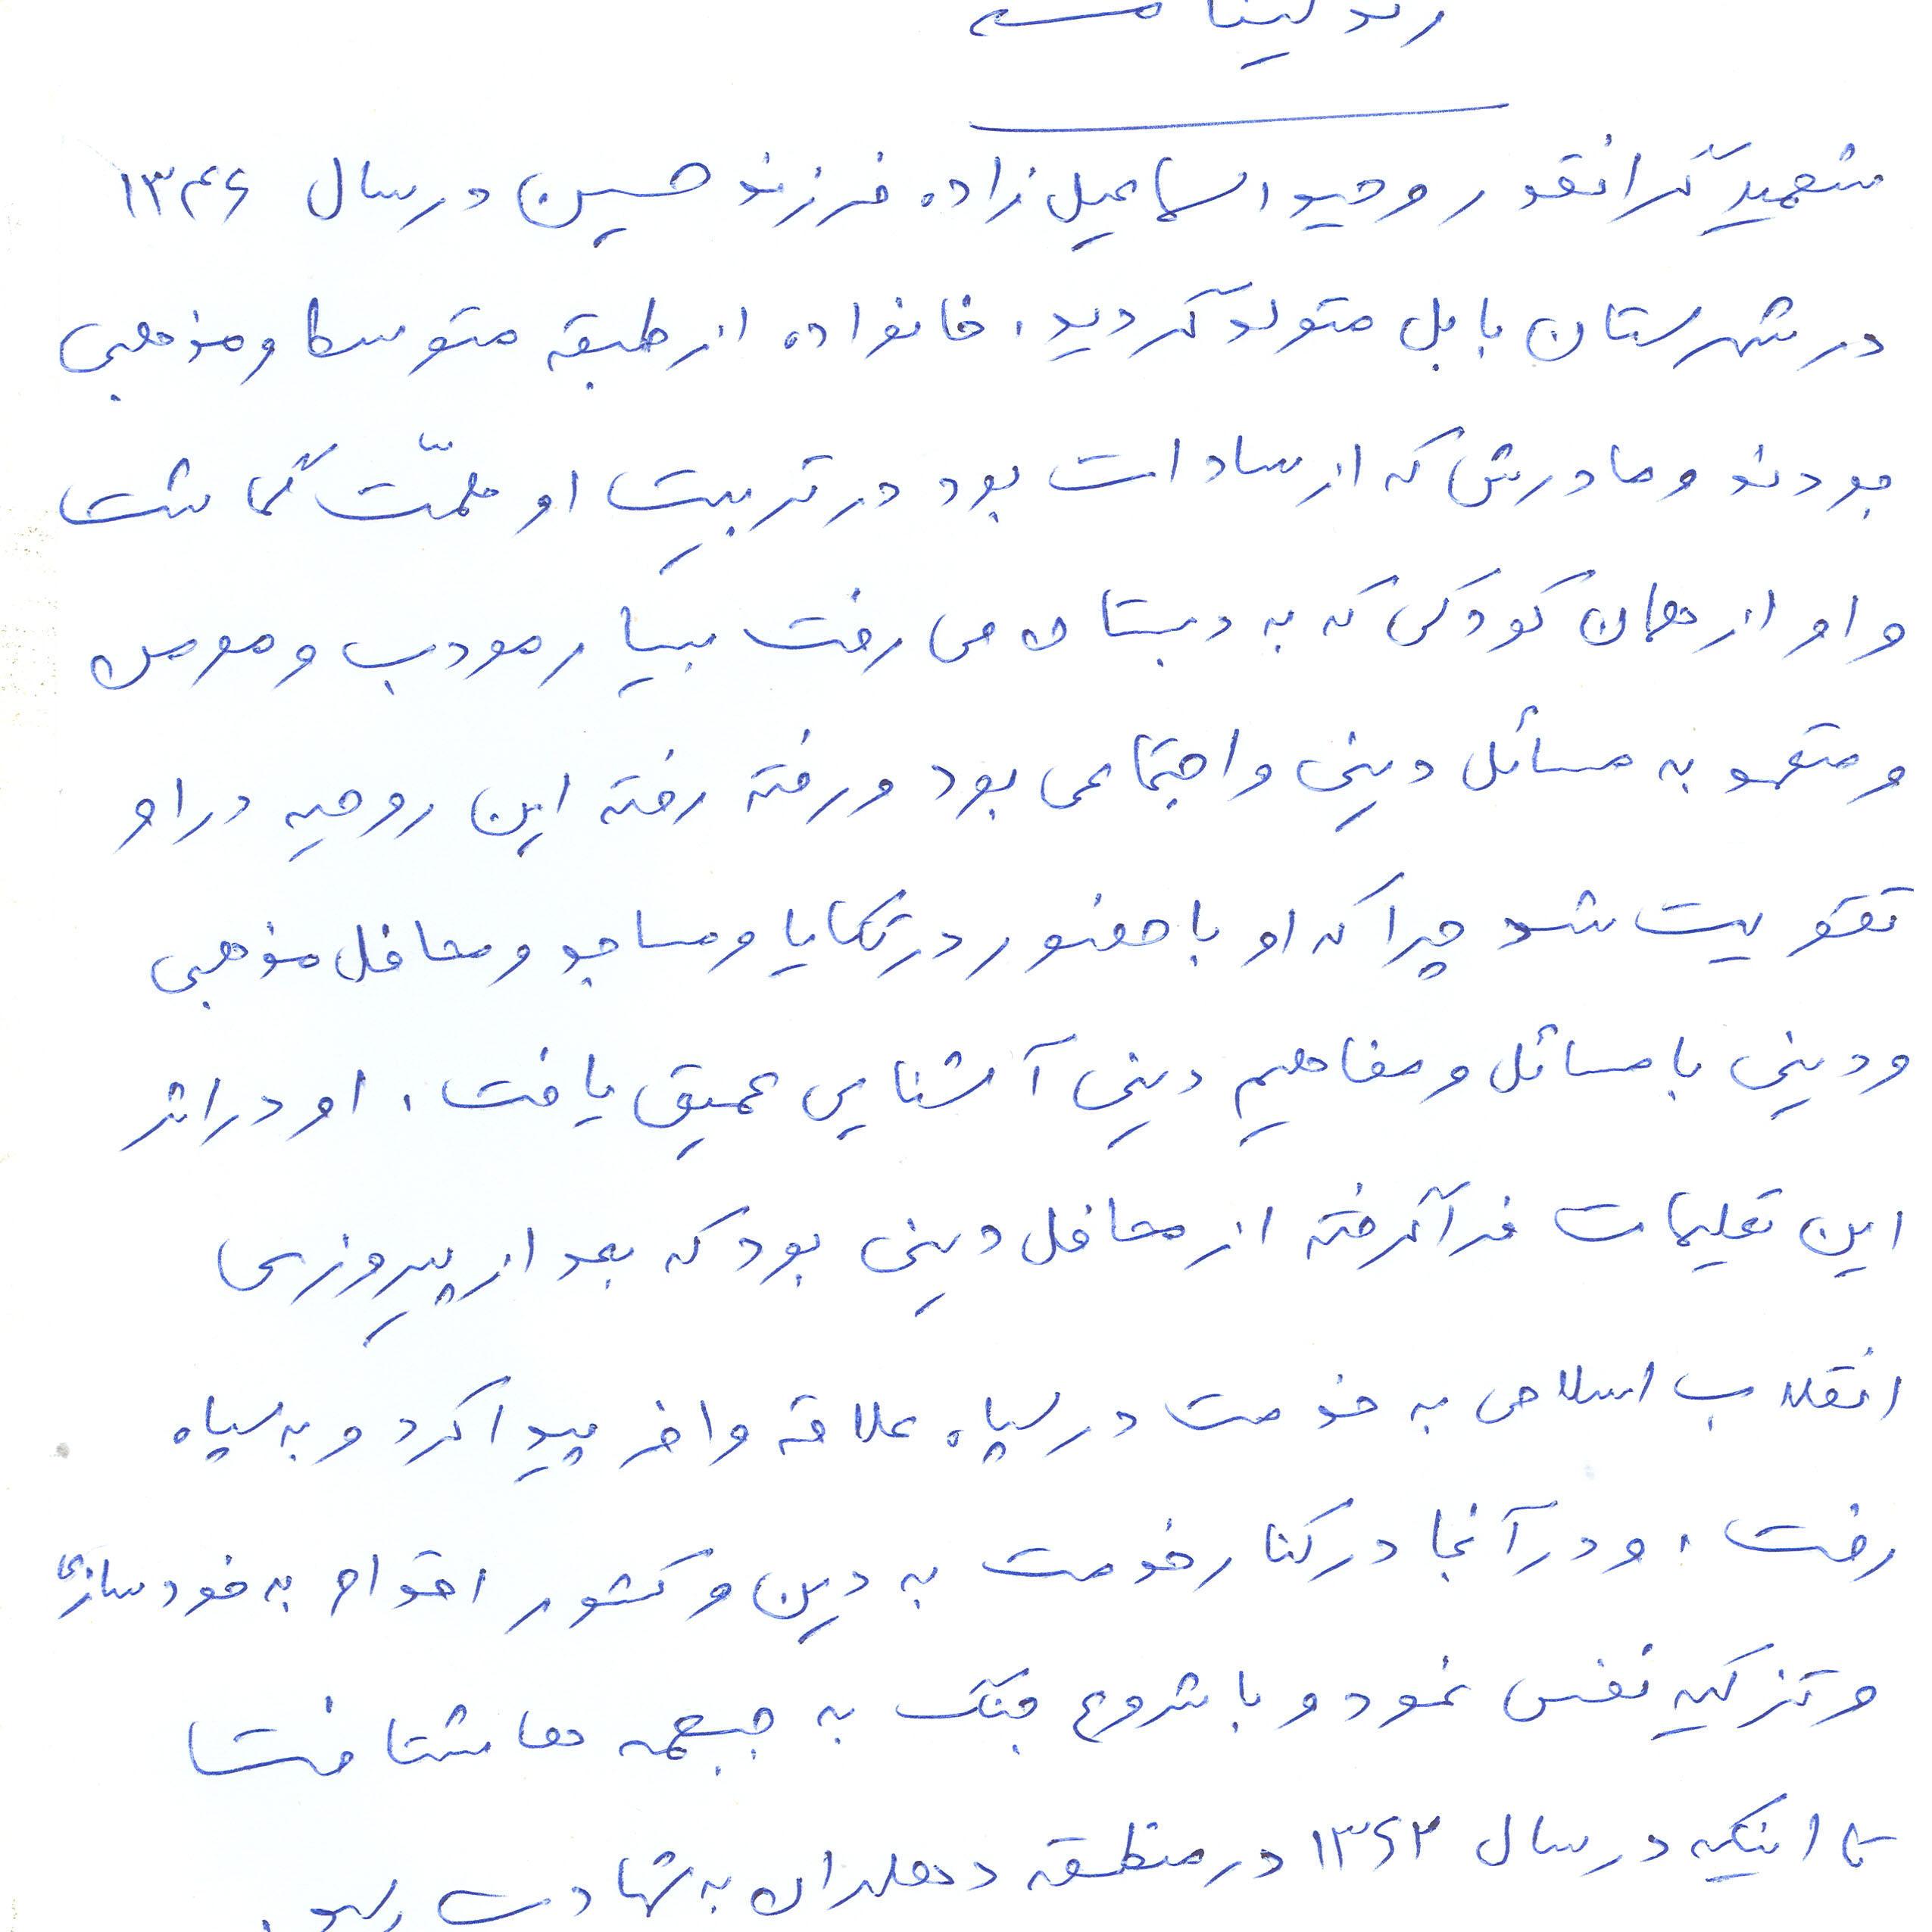 زندگینامه
شهید گرانقدر وحید اسماعیل زاده فرزند حسین در سال ۱۳۴۶
در شهرستان بابل متولد گردید. خانواده از طبقه متوسط و مذهبی
بودند و مادرش که از سادات بود در تربیت او همّت گماشت
و او از همان کودکی که به دبستان می رفت بسیار مودب و مومن
و متعهد به مسائل دینی و اجتماعی بود و رفته رفته این روحیه در او
تقویت شد چرا که او با حضور در تکایا و مساجد و محافل مذهبی
و دینی با مسائل و مفاهیم دینی آشنایی عمیق یافت. او در اثر
این تعلیمات فراگرفته از محافل دینی بود که بعد از پیروزی
انقلاب اسلامی به خدمت در سپاه علاقه وافر پیدا کرد و به سپاه
رفت. و در آنجا در کنار خدمت به دین و کشور اقدام به خودسازی
و تزکیه نفس نمود و با شروع جنگ به جبهه ها شتافت
تا اینکه در سال ۱۳۶۲ در منطقه دهلران به شهادت رسید.